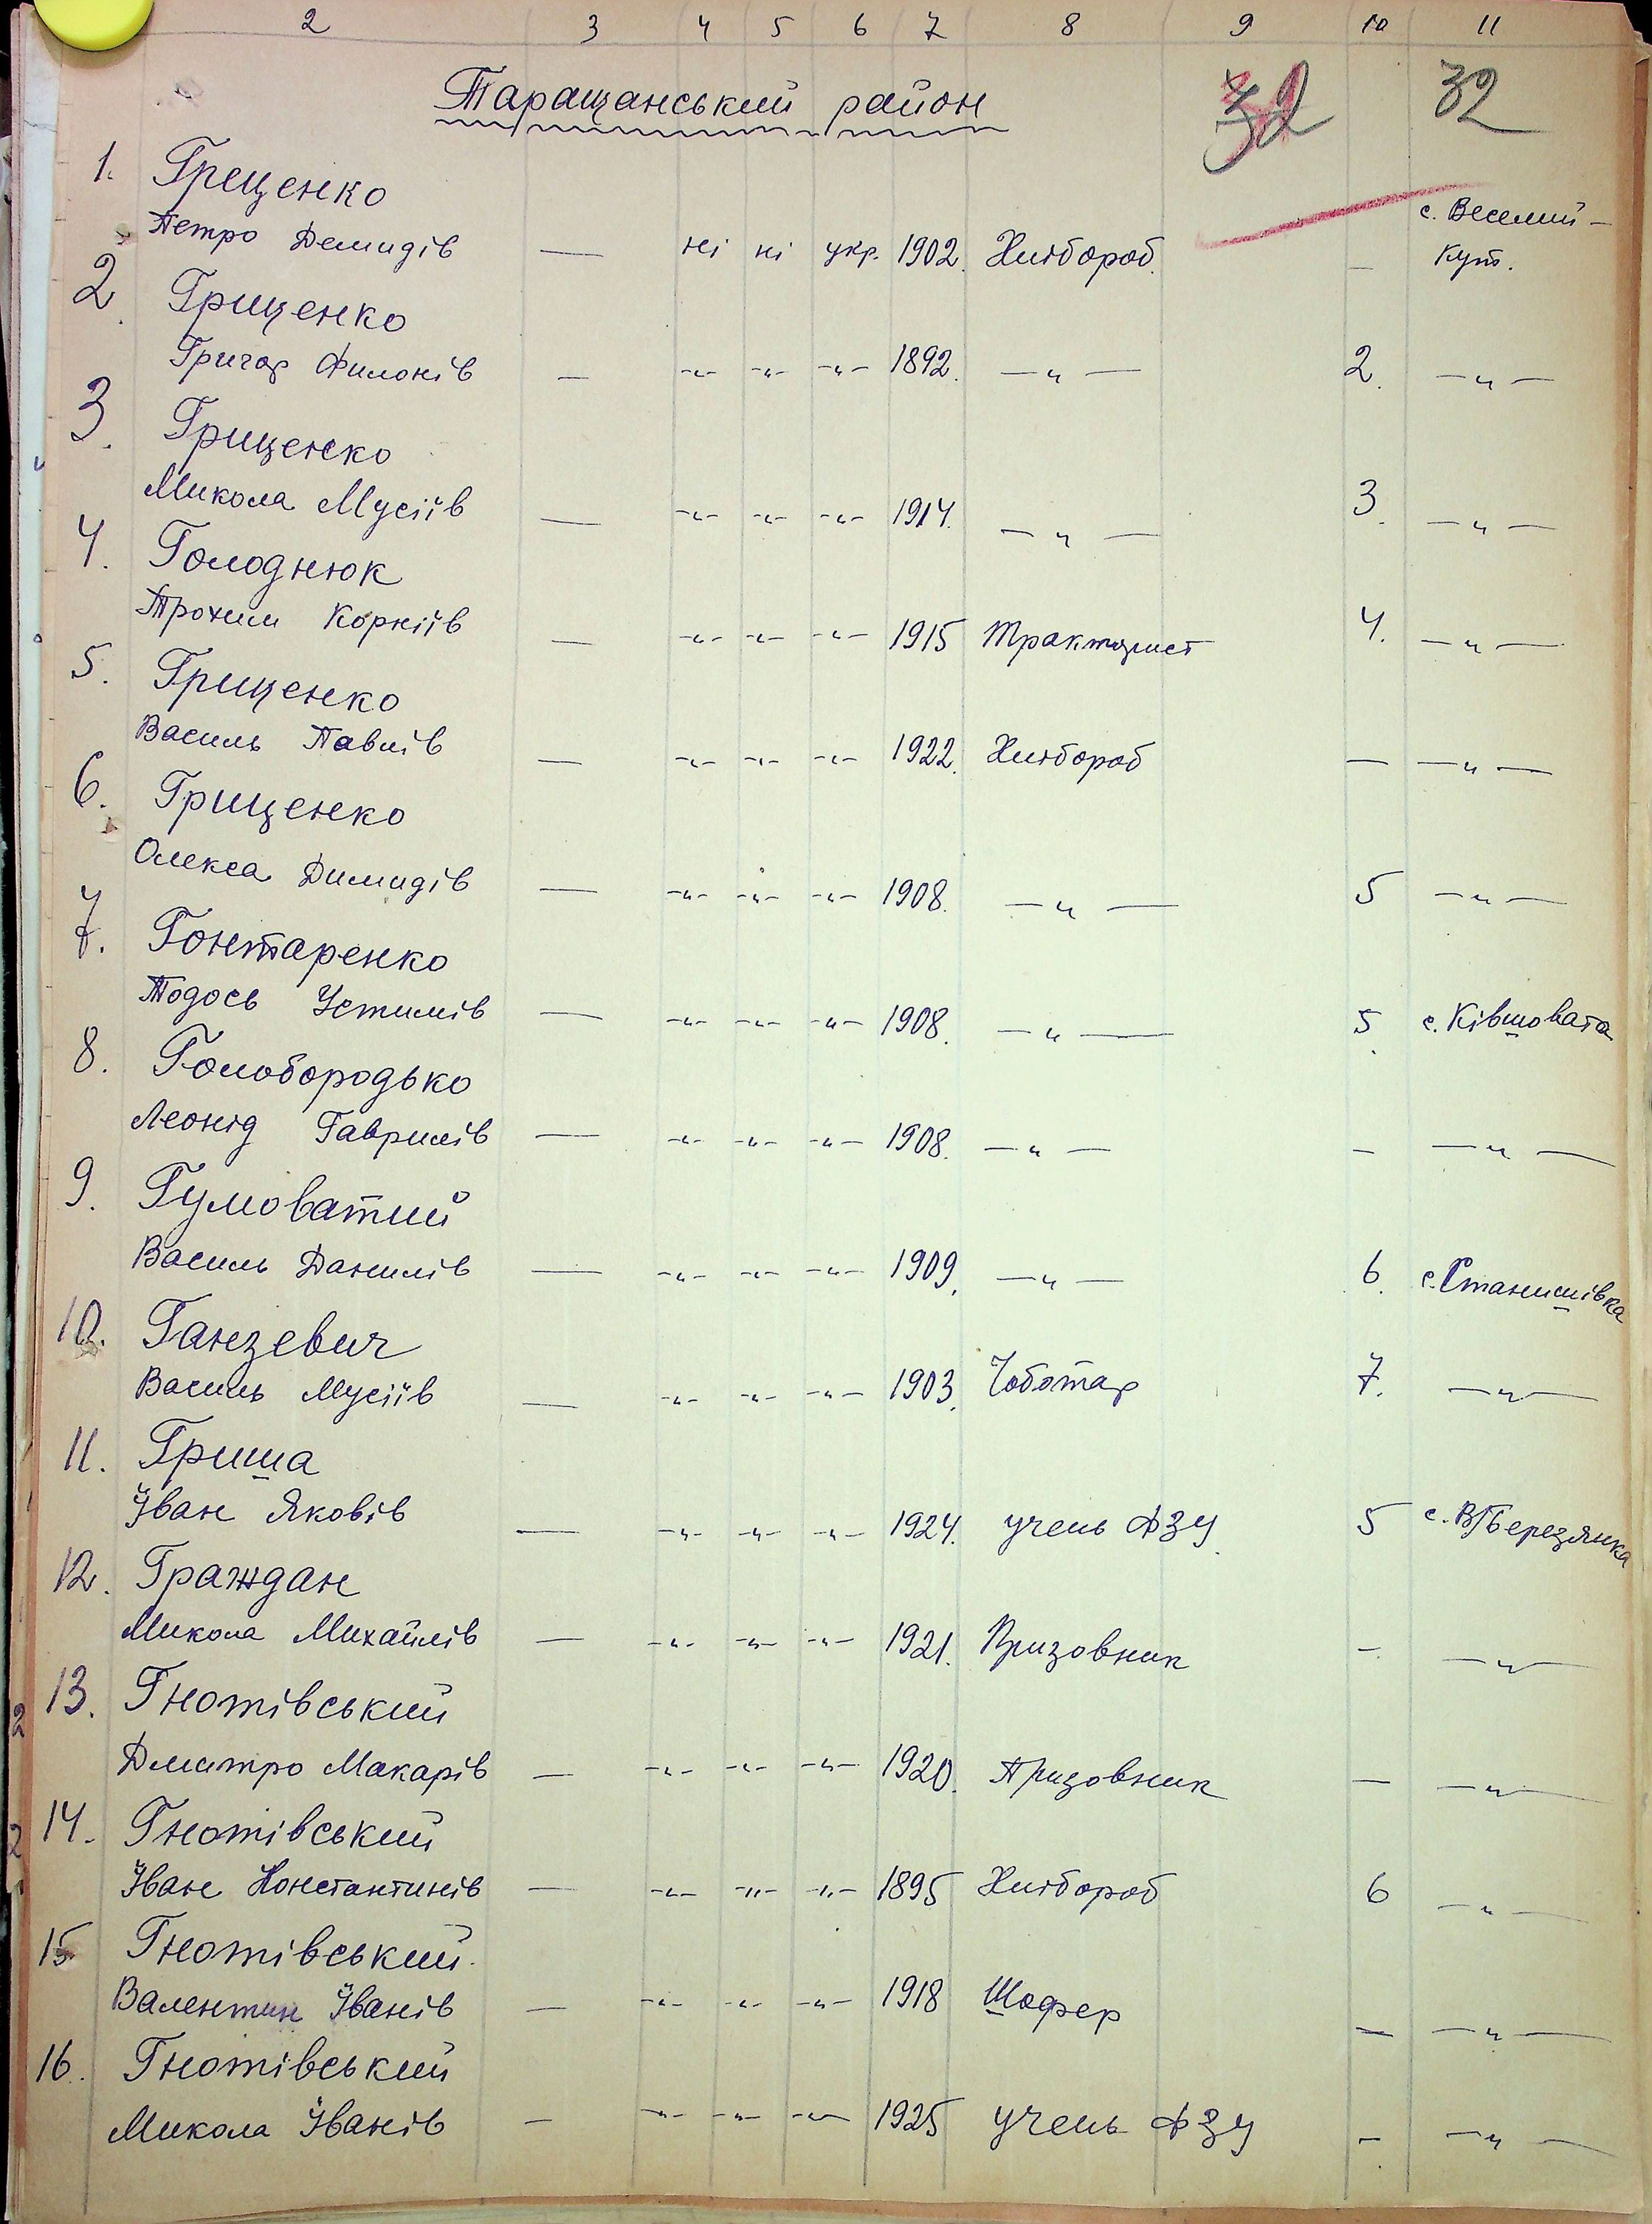 2 3 4 5 6 7 8 9 10 11
Таращанський район 32 32
1. Греценко с. Веселий-
Петро Демидів — ні ні укр. 1902. Хлібороб. — Кут.
2. Гриценко
Григор Филонів — -"- -"- -"- 1892. —"— 2. —"—
3. Гриценко
Микола Мусіїв — -"- -"- -"- 1914. —"— 3. —"—
4. Голоднюк
Трохим Корніїв — -"- -"- -"- 1915 Тракторист 4. —"—
5. Гриценко
Василь Павлів — -"- -"- -"- 1922. Хлібороб — —"—
6. Гриценко
Олекса Димидів — -"- -"- -"- 1908. —"— 5 —"—
7. Гонтаренко
Тодось Устимів — -"- -"- -"- 1908. —"— 5. с. Ківшовата
8. Голобородько
Леонід Гаврилів — -"- -"- -"- 1908. —"— — —"—
9. Гумоватий
Василь Данилів — -"- -"- -"- 1909. —"— 6. с. Станишівка
10. Ганзевич
Василь Мусіїв — -"- -"- -"- 1903. Чоботар 7. —"—
11. Гриша
Іван Яковів — -"- -"- -"- 1924. учень ФЗУ. 5 с. В/Березянка
12. Граждан
Микола Михайлів — -"- -"- -"- 1921. Призовник — —"—
13. Гнотівський
Дмитро Макарів — -"- -"- -"- 1920. Призовник — —"—
14. Гнотівський
Іван Константинів — -"- -"- -"- 1895 Хлібороб 6 —"—
15. Гнотівський.
Валентин Іванів — -"- -"- -"- 1918 Шофер — —"—
16. Гнотівський
Микола Іванів — -"- -"- -"- 1925 учень ФЗУ — —"—